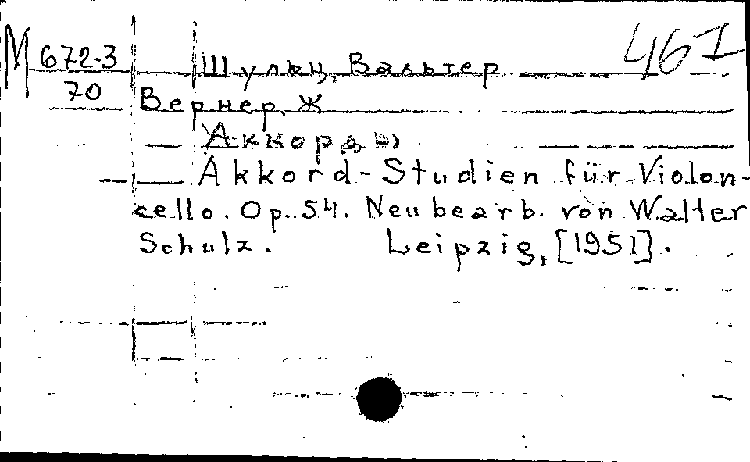 М 672-3 Шульц, Вальтер 461
70 Вернер, Ж
Аккорды
Akkord-Studien für Violon-
cello. Op. 54. Neubearb. von Walter
Schulz. Leipzig, [1951].